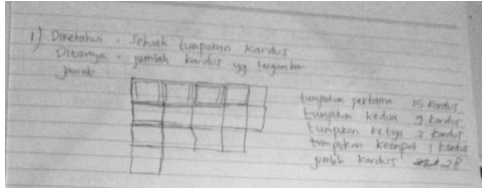 1) Diketahui : Sebuah tumpukan kardus
Ditanya : jumlah kardus yg tergambar
Jawab :
tumpukan pertama 15 kardus
tumpukan kedua 9 kardus
tumpukan ketiga 3 kardus
tumpukan keempat 1 kardus
jumlah kardus 28